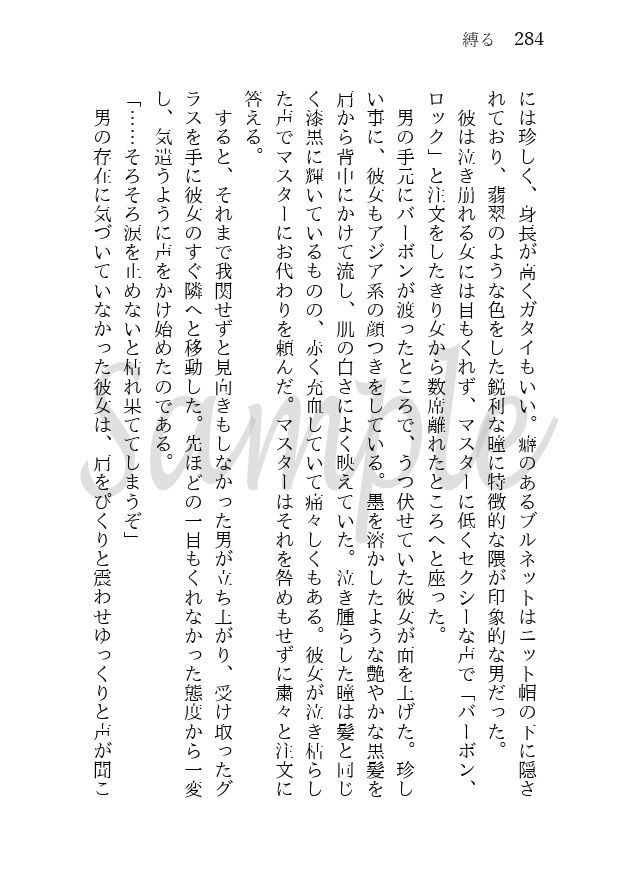 縛る　284
には珍しく、身長が高くガタイもいい。癖のあるブルネットはニット帽の下に隠さ
れており、翡翠のような色をした鋭利な瞳に特徴的な隈が印象的な男だった。
　彼は泣き崩れる女には目もくれず、マスターに低くセクシーな声で「バーボン、
ロック」と注文をしたきり女から数席離れたところへと座った。
　男の手元にバーボンが渡ったところで、うつ伏せていた彼女が面を上げた。珍し
い事に、彼女もアジア系の顔つきをしている。墨を溶かしたような艶やかな黒髪を
肩から背中にかけて流し、肌の白さによく映えていた。泣き腫らした瞳は髪と同じ
く漆黒に輝いているものの、赤く充血していて痛々しくもある。彼女が泣き枯らし
た声でマスターにお代わりを頼んだ。マスターはそれを咎めもせずに粛々と注文に
答える。
　すると、それまで我関せずと見向きもしなかった男が立ち上がり、受け取ったグ
ラスを手に彼女のすぐ隣へと移動した。先ほどの一目もくれなかった態度から一変
し、気遣うように声をかけ始めたのである。
「……そろそろ涙を止めないと枯れ果ててしまうぞ」
　男の存在に気づいていなかった彼女は、肩をぴくりと震わせゆっくりと声が聞こ
Sample